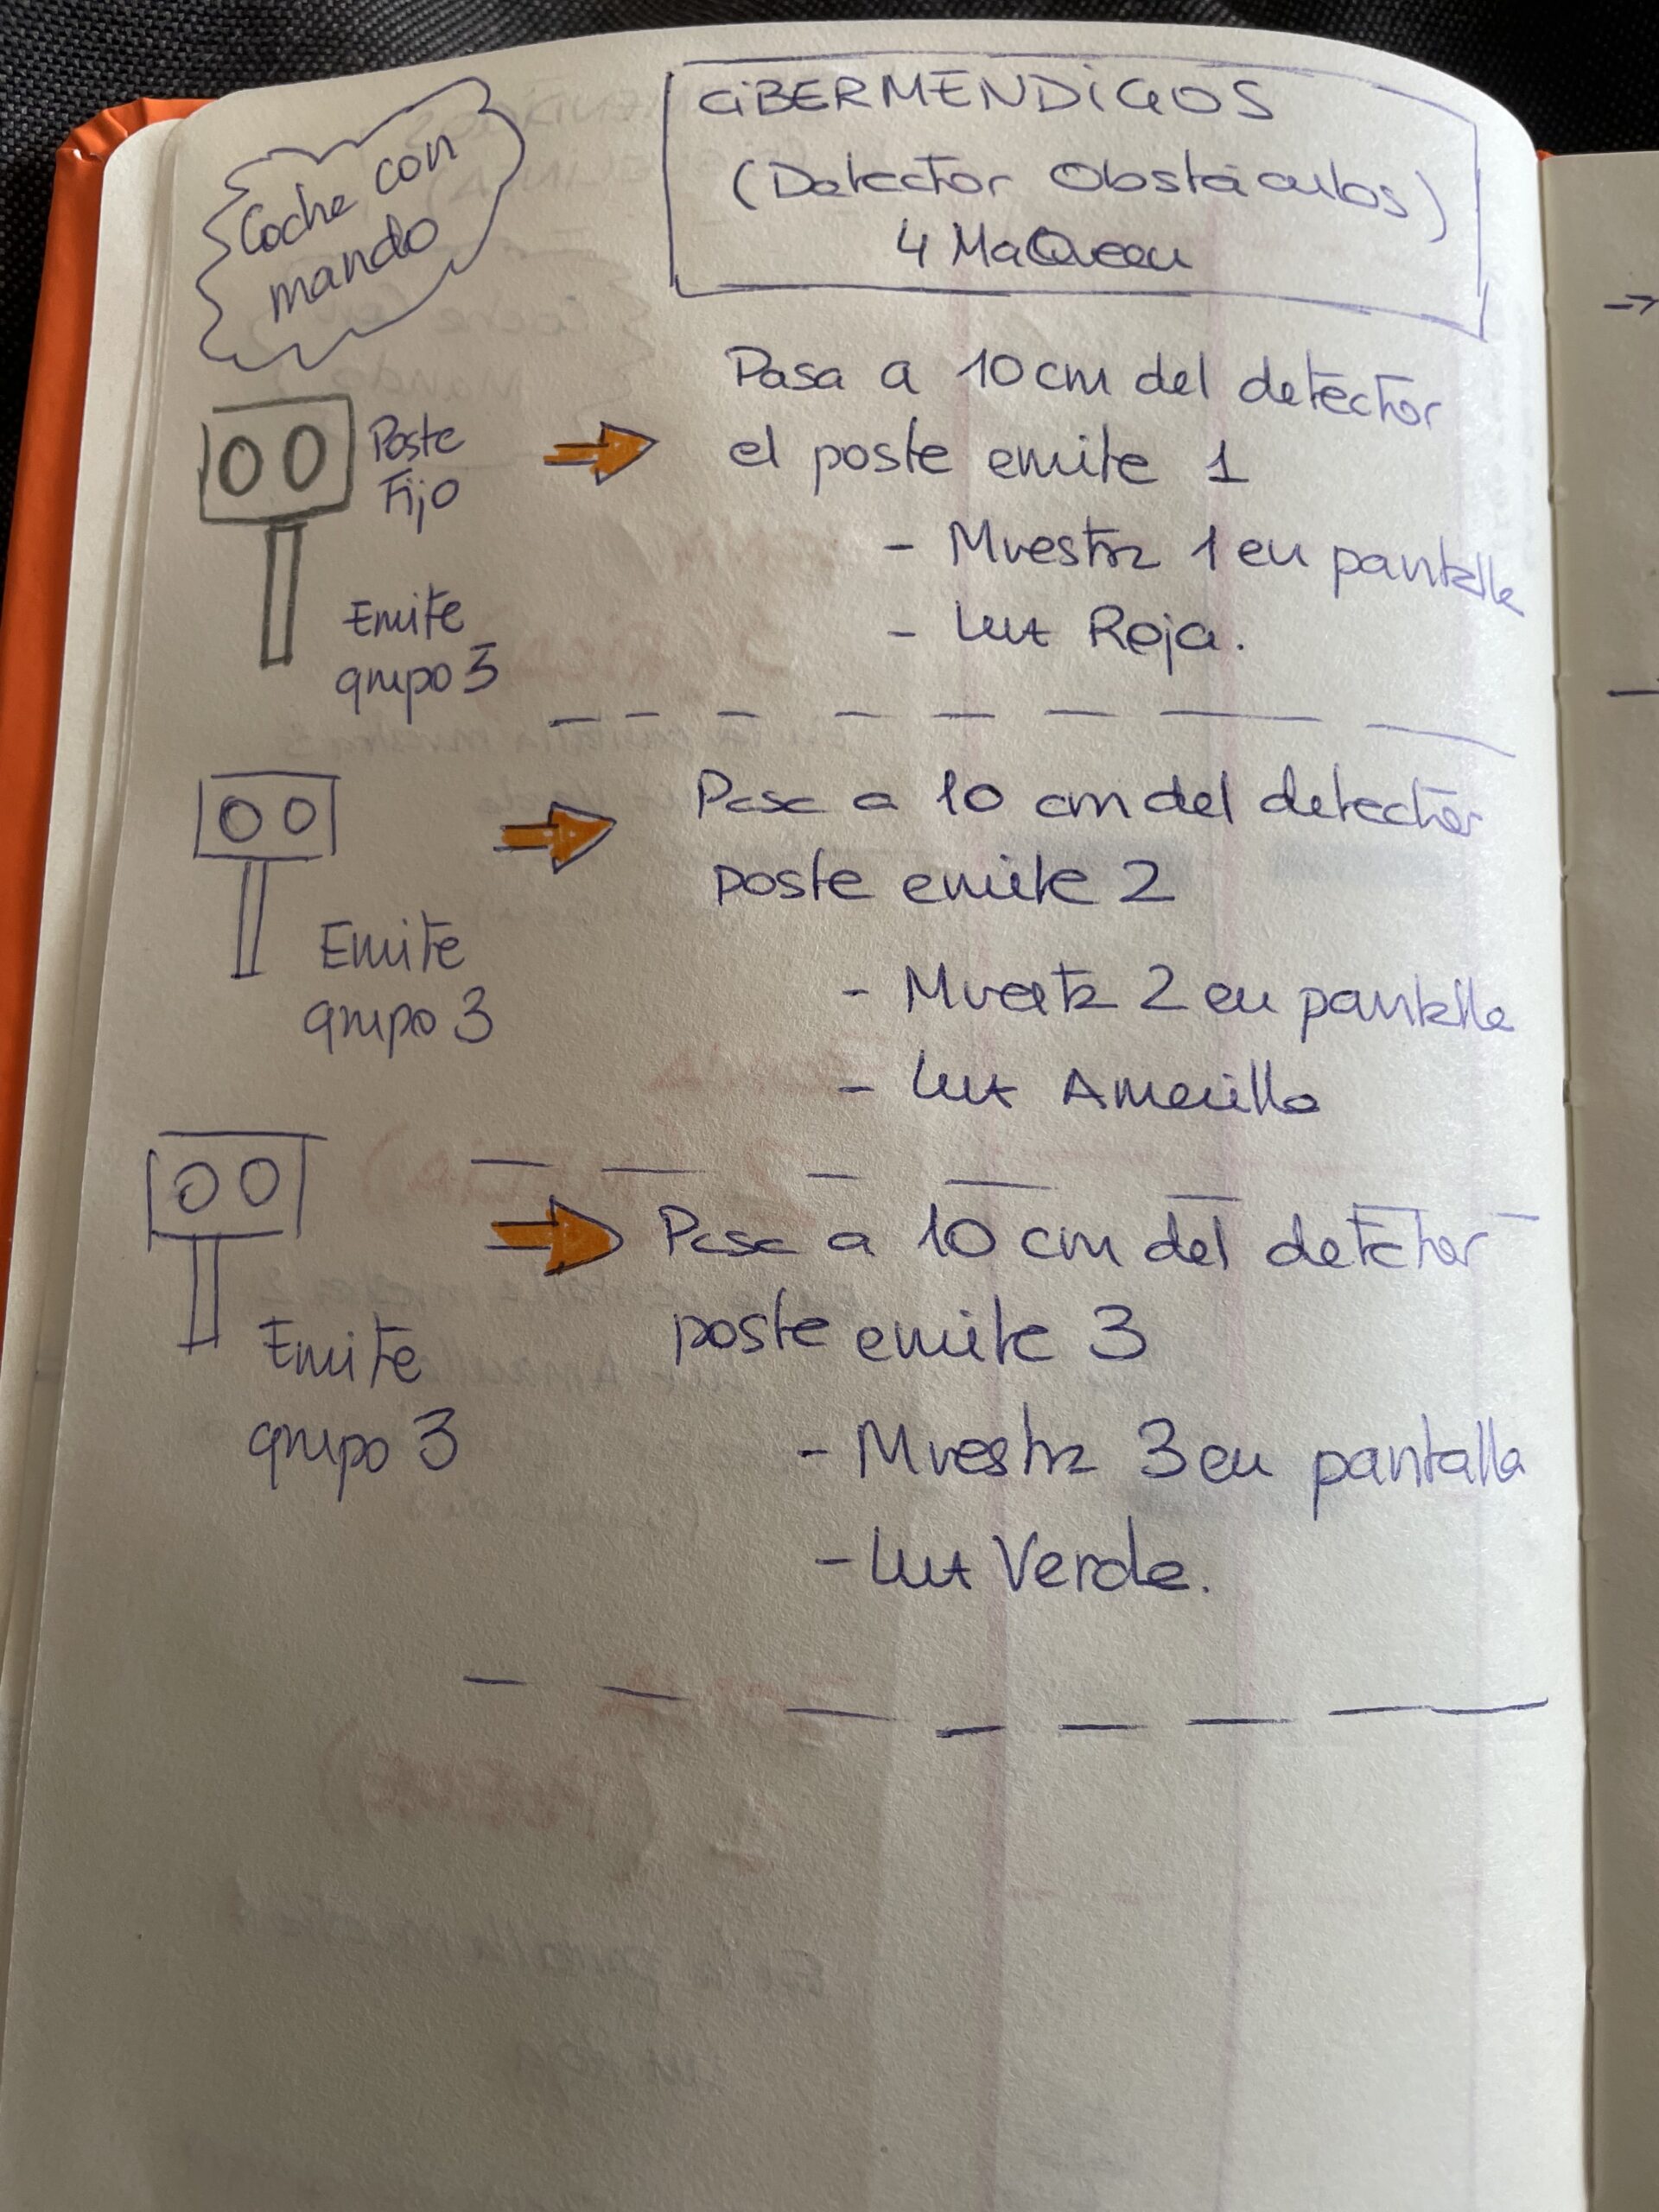 Coche con
mando
CIBERMENDIGOS
(Detector Obstáculos)
4 MaQueen
Pasa a 10 cm del detector
el poste emite 1
- Muestra 1 en pantalla
- Luz Roja.
Poste
Fijo
Emite
grupo 3
Pasa a 10 cm del detector
poste emite 2
- Muestra 2 en pantalla
- Luz Amarilla
Emite
grupo 3
Pasa a 10 cm del detector
poste emite 3
- Muestra 3 en pantalla
- Luz Verde.
Emite
grupo 3